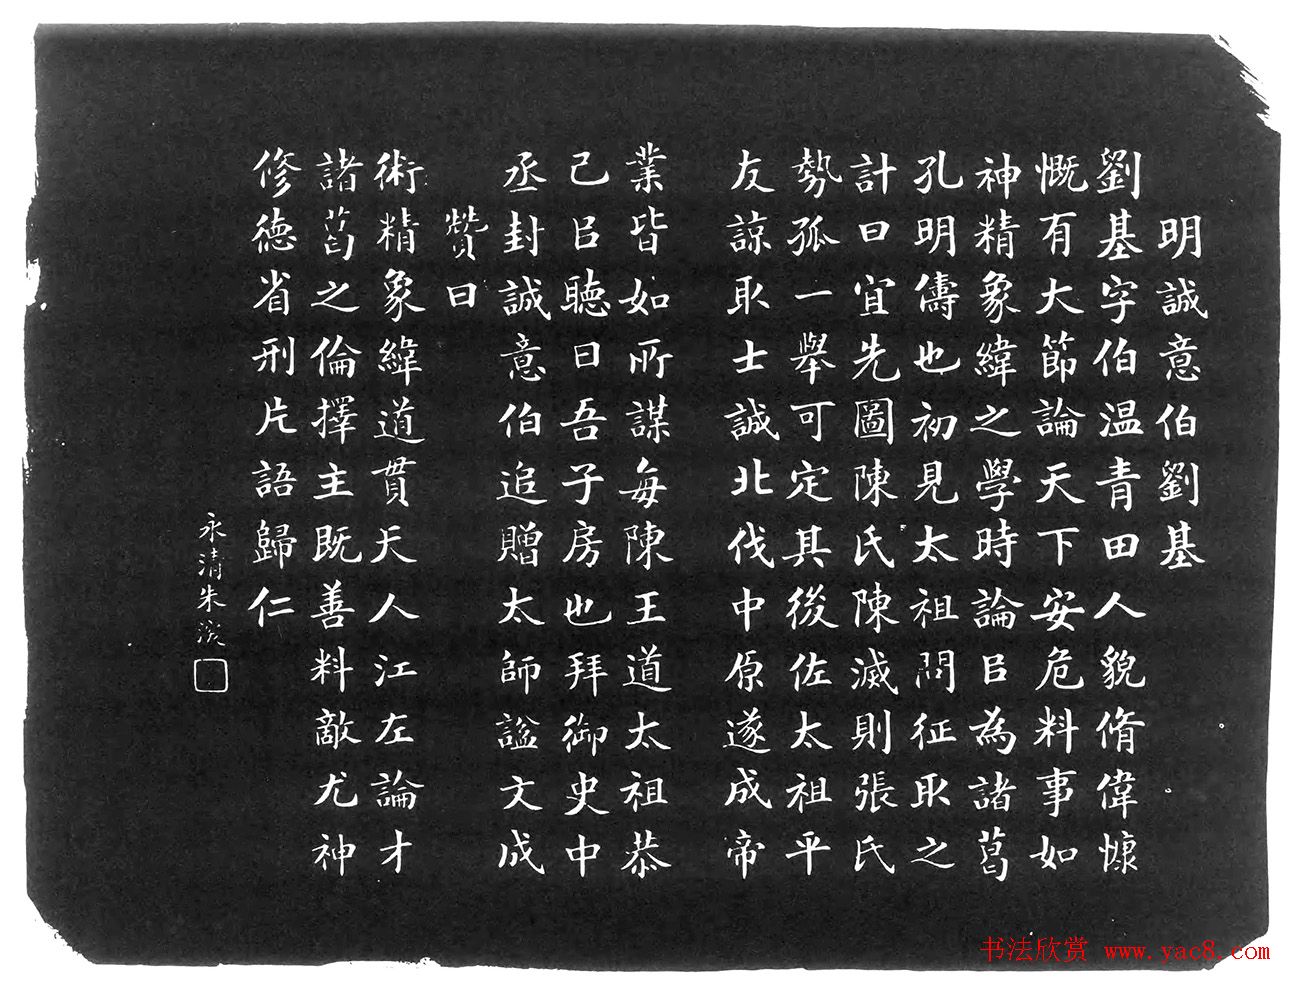 明誠意伯劉基
劉基字伯温青田人貌脩偉慷
慨有大節論天下安危料事如
神精象緯之學時論㠯為諸葛
孔明儔也初見太祖問征取之
計曰宜先圖陳氏陳滅則張氏
勢孤一舉可定其後佐太祖平
友諒取士誠北伐中原遂成帝
業皆如所謀每陳王道太祖恭
己㠯聽曰吾子房也拜御史中
丞封誠意伯追贈太師謚文成
贊曰
術精象緯道貫天人江左論才
諸葛之倫擇主既善料敵尤神
修德省刑片語歸仁
永清朱
书法欣赏 www.yac8.com